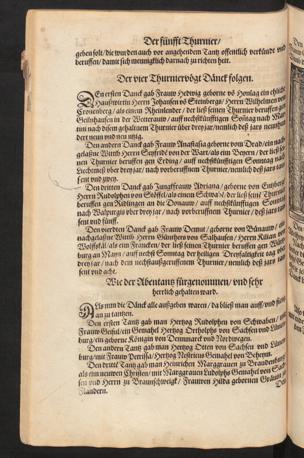 Der fünfft Thurnier/
geben solt/ die wurden auch vor angehendem Tantz offentlich verkündt vnd
beruffen/ damit sich menniglich darnach zu richten hett.
Der vier Thurniervögt Dänck folgen.
DEn ersten Danck gab Frauw Hedwig geborne võ ein ehliche
Haußwirtin Herrn Johansen võ Sternbergs/ Herrn Wilhelmen von
Cronenberg/ als einem Rheinlender/ der ließ seinen Thurnier beruffen gen
Geilnhausen in der Wetterauw/ auff nechstkünfftigen Soñtag nach Mar
tini nach disem gehaltenem Thurnier vber drey jar/ nemlich deß jars neunhun
dert neun vnd neuntzig.
Den andern Danck gab Frauw Anastasia geborne von ein nach
gelaßne Wittib Herrn Seyfrids von der Wart/ als ein Beyern/ der ließ sei
nen Thurnier beruffen gen Erding/ auff nechstkünfftigen Sonntag nach
Liechtmeß vber drey jar/ nach vorberürtem Thurnier/ nemlich deß jars tau
sent vnd zwey.
Den dritten Danck gab Jungkfrauw Adriana/ geborne von
Herrn Rudolphen von Stöffel/ als einem Schwabē/ der ließ seinē Thurnier
beruffen gen Ridlingen an die Donauw/ auff nechstkünfftigen Sonntag
nach Walpurgis vber drey jar/ nach vorberürtem Thurnier/ deß jars tau
sent vnd fünff.
Den vierdten Danck gab Frauw Demut/ geborne von Bünauw/ ein
nachgelaßne Wittib Herrn Günthers von Salhausen/ Herrn Kilian von
Wolffskäl/ als ein Francken/ der ließ seinen Thurnier beruffen gen
burg an Mayn/ auff nechst Sonntag der heiligen Dreyfaltigkeit tag vber
drey jar/ nach dem nechstaußgeruffenem Thurnier/ nemlich deß jars tau
sent vnd acht.
Wie der Abentantz fürgenommen/ vnd sehr
herrlich gehalten ward.
ALs nun die Dänck alle außgeben waren/ da bließ man auff/ vnd fieng
an zu tantzen.
Den ersten Tantz gab man Hertzog Rudolphen von Schwaben/ mit
Frauw Gemahel Hertzog Ortholphs von Sachsen vnd Lünen
burg/ ein geborne Königin von Dennmarck vnd Nordwegen.
Den andern Tantz gab man Hertzog Otten von Sachsen vnd Lünen
burg/ mit Frauw Gemahel Hertzog von Beheym.
Den dritē Tantz gab man Heinrichen Marggrauen zu Brandenburg
als ein neuwen Christen/ mit Marggrauen Ludolphs Gemahel von Sach
sen vnd Herrn zu Braunschweigk/ Frauwen Hilda gebornen Gräuin
Flandern.